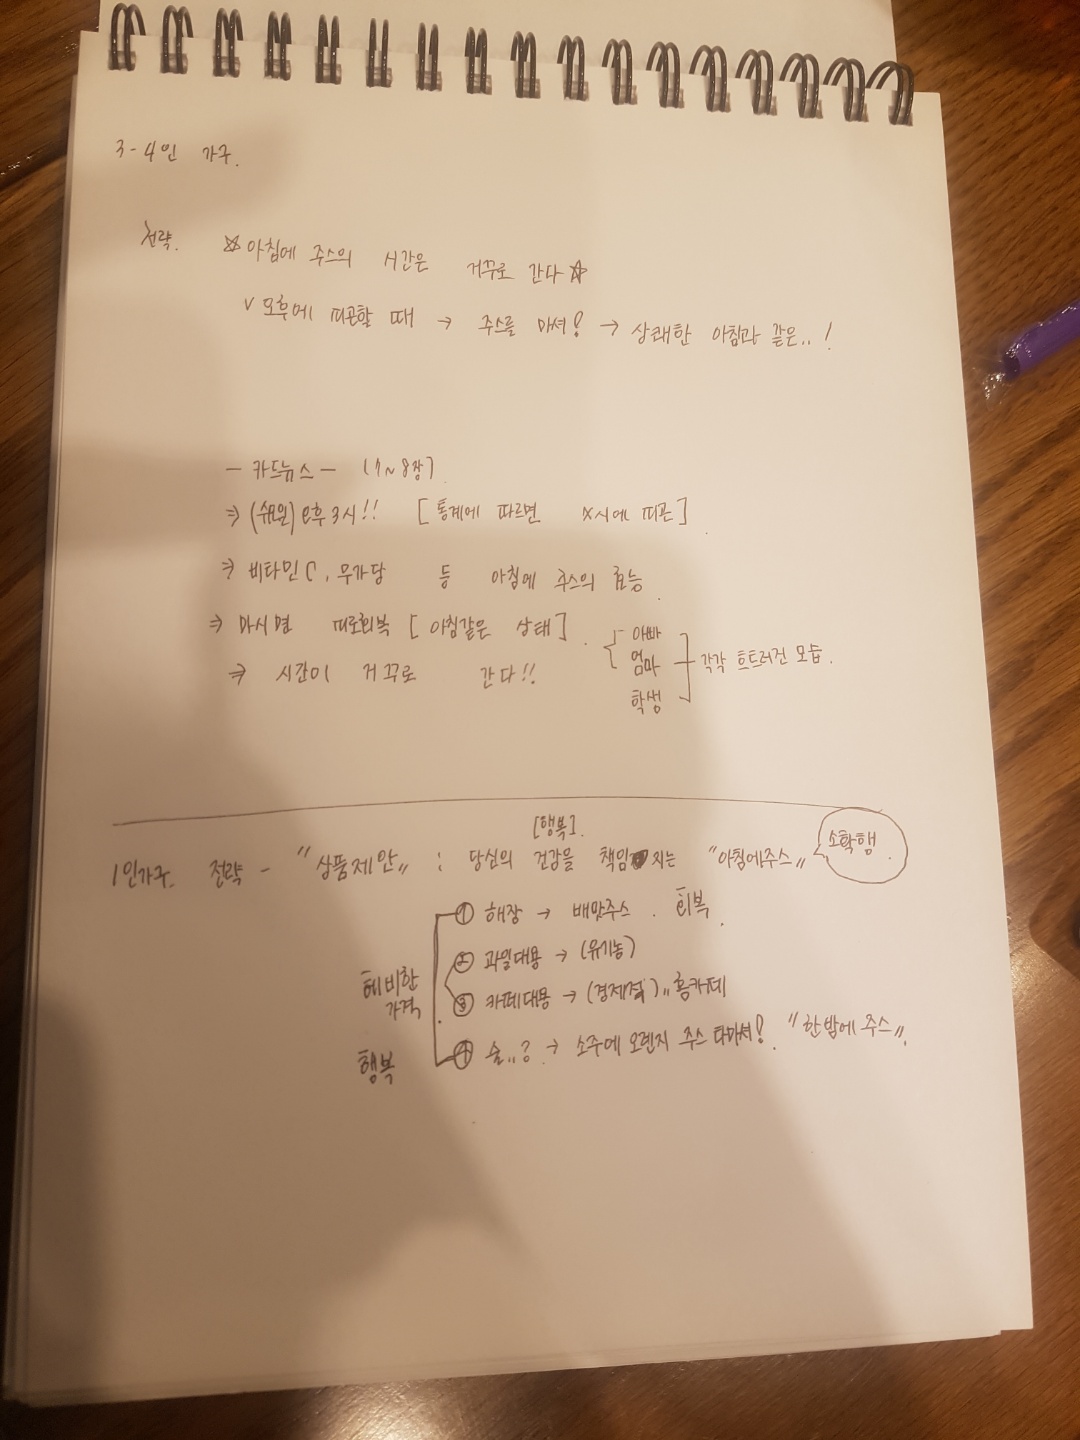 3-4인 가구.
전략. ☆아침에 주스의 시간은 거꾸로 간다☆
v 오후에 피곤할 때 → 주스를 마셔! → 상쾌한 아침과 같은.. !
- 카드뉴스 - (7~8장)
⇒ (수요일) 오후 3시!! [통계에 따르면 X시에 피곤]
⇒ 비타민C, 무가당 등 아침에 주스의 효능.
⇒ 마시면 피로회복 [아침같은 상태]. 아빠
엄마 각각 흐트러진 모습.
⇒ 시간이 거꾸로 간다!!
학생
[행복].
1인가구. 전략 - "상품제안" : 당신의 건강을 책임지는 "아침에주스" 소확행.
① 해장 → 배맛주스. 회복.
② 과일대용 → (유기농)
헤비한 가격 ③ 카페대용 → (경제적) "홈카페
행복 ④ 술..? → 소주에 오렌지 주스 타마셔! "한밤에 주스".